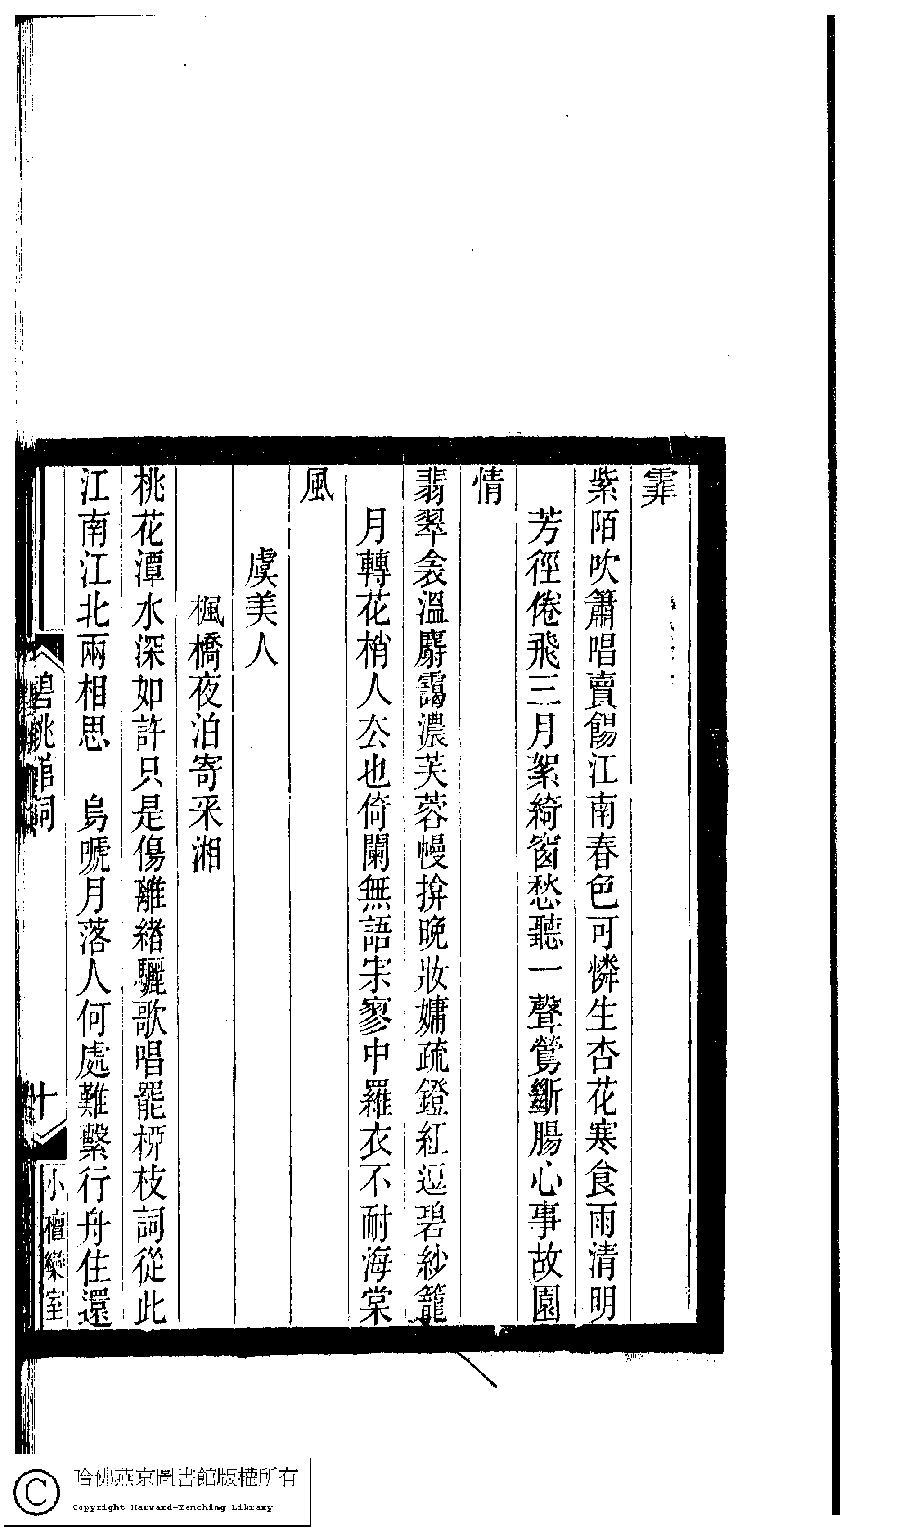 霏
紫陌吹簫唱賣餳江南春色可憐生杏花寒食雨清明
芳徑倦飛三月絮綺窗愁聽一聲鶯斷腸心事故園
情
翡翠衾溫麝靄濃芙蓉幔揜晚妝慵疏鐙紅逗碧紗籠
月轉花梢人去也倚闌無語宋寥中羅衣不耐海棠
風
虞美人
楓橋夜泊寄采湘
桃花潭水深如許只是傷離緒驪歌唱罷柳枝詞從此
江南江北兩相思 烏嗁月落人何處難繫行舟住還
碧桃館詞
十
小檀欒室
哈佛燕京圖書館版權所有
Copyright Harvard-Yenching Library